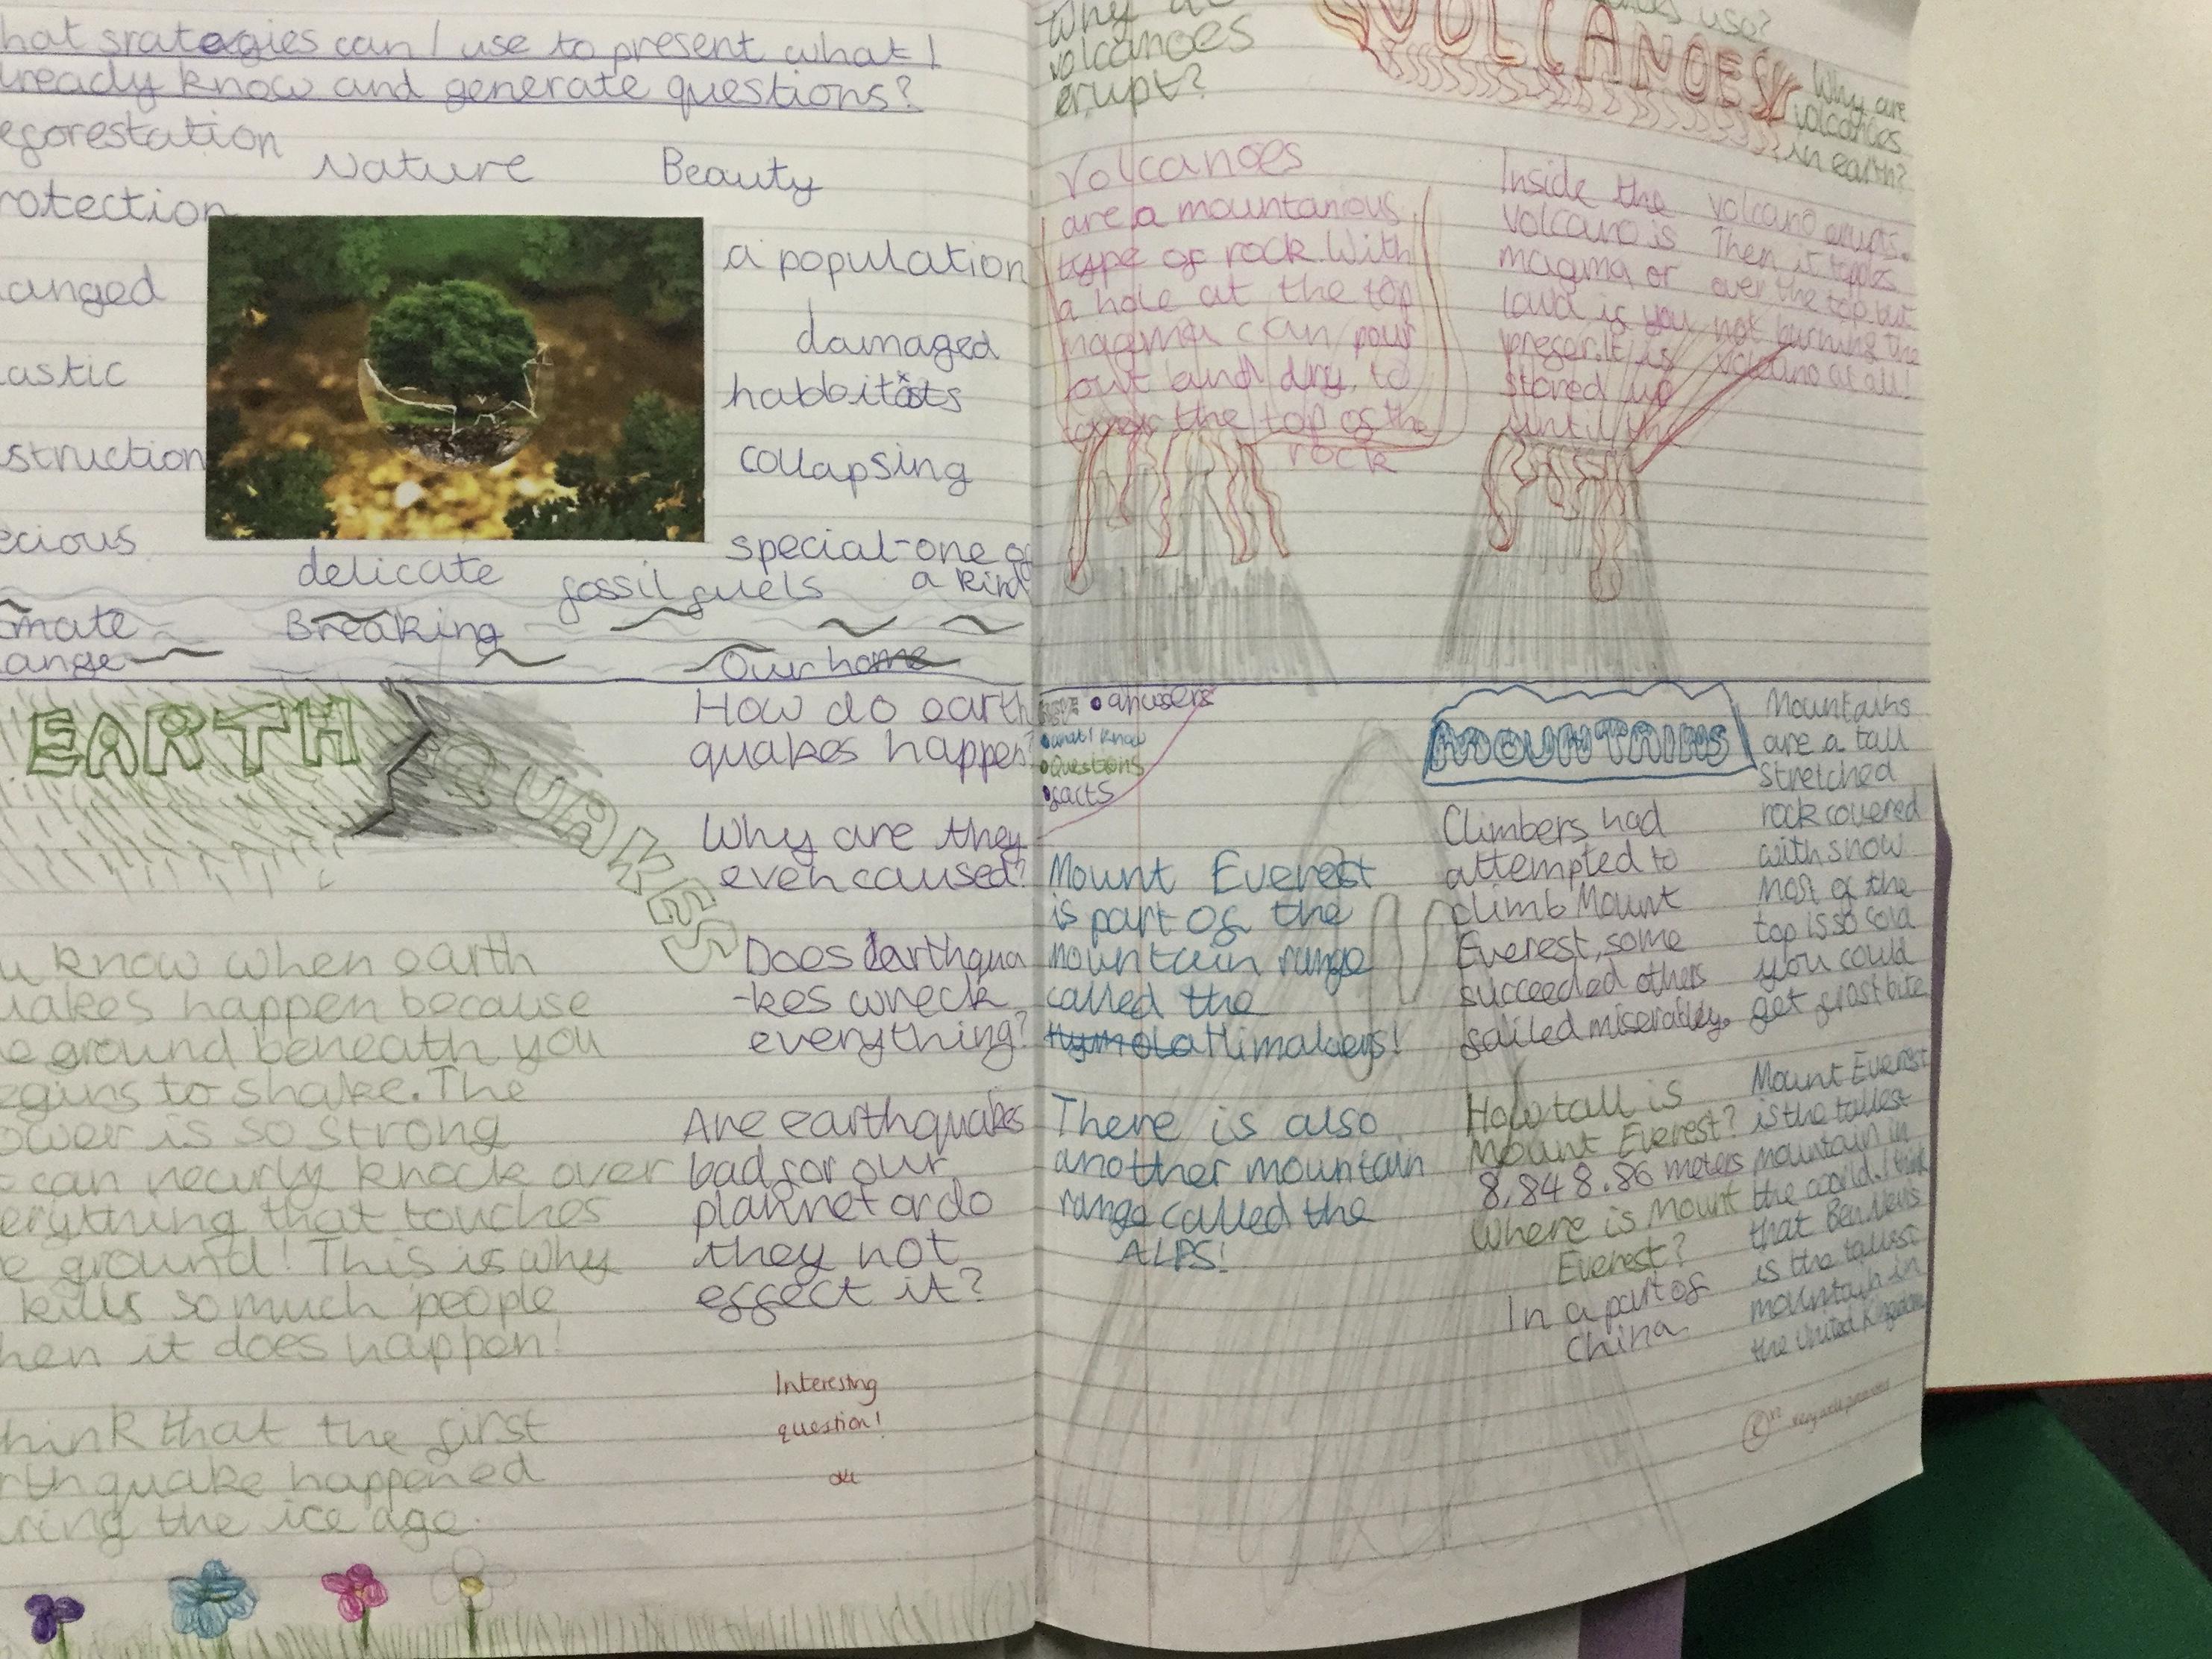 hat srategies can I use to present what I
lready know and generate questions?
eforestation
Nature
Beauty
rotection
anged
astic
struction
ecious
a population
damaged
habbitats
collapsing
special-one of
a kind
delicate
fossil fuels
mate
ange
Breaking
Our home
EARTH
QUAKES
How do earth
quakes happen?
Why are they
even caused?
Does Earthqua
-kes wreck
everything?
Are earthquakes
bad for our
plannet or do
they not
effect it?
Interesting
question!
u know when earth
uakes happen because
e ground beneath you
egins to shake. The
ower is so strong
t can nearly knock over
erything that touches
e ground! This is why
kills so much people
hen it does happen!
hink that the first
rthquake happened
uring the ice age.
Why do
volcanoes
erupt?
VOLCANOES
use?
Why are
volcanoes
in earth?
Volcanoes
are a mountanious
type of rock. With
a hole at the top
magma can pour
out and dry, to
cover the top of the
rock
Inside the
volcano is
magma or
lava if you
prefer. It is
stored up
until the
volcano erupts.
Then it topples
over the top but
not burning the
volcano at all!
answers
what I know
Questions
facts
MOUNTAINS
Mount Everest
is part of the
mountain range
called the
Himalayers!
There is also
another mountain
range called the
ALPS!
Climbers had
attempted to
climb Mount
Everest, some
succeeded others
failed miserabley.
How tall is
Mount Everest?
8,848.86 meters
Where is Mount
Everest?
In a part of
China
Mountains
are a tall
stretched
rock covered
with snow
Most of the
top is so cold
you could
get frost bite
Mount Everest
is the tallest
mountain in
the world. I think
that Ben Nevis
is the tallest
mountain in
the United Kingdom